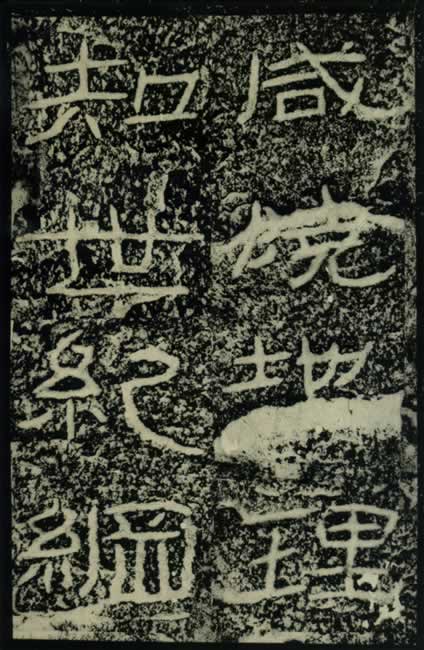 咸曉地理
知世紀綱